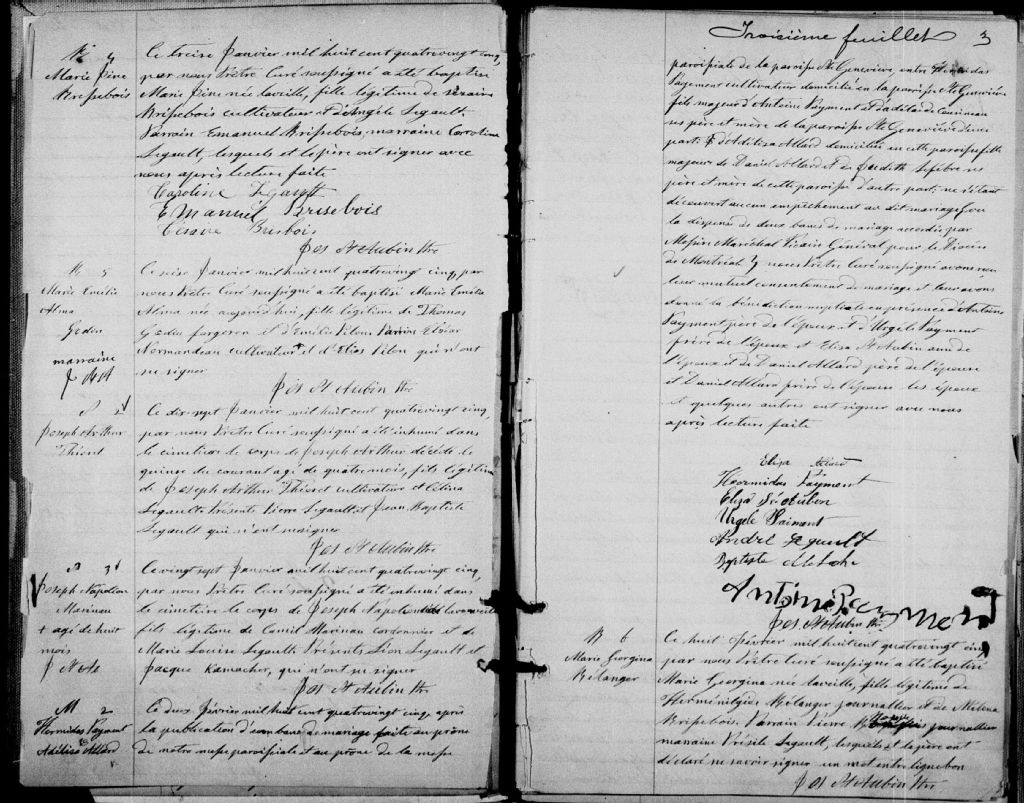 B 4
Marie Irène
Brisebois
Ce treise Janvier mil huit cent quatrevingt cinq
par nous Prêtre Curé soussigné a été baptisé
Marie Irène née la veille, fille légitime de
Brisebois cultivateur et d'Angèle Legault.
Parrain Emanuel Brisebois, marraine Caroline
Legault, lesquels et le père ont signer avec
nous après lecture faite
Caroline Legault
Emanuel Brisebois
Jos St Aubin Ptre
B 5
Marie Emilie
Alma
Godin
marraine
Ce seise Janvier mil huit cent quatrevingt cinq, par
nous Prêtre Curé soussigné a été baptisé Marie Emélie
Alma née aujourd'hui, fille légitime de Thomas
Godin forgeron et d'Emélie Pilon Parrain
Normandeau cultivateur et d'Elise Pilon qui n'ont
su signer
Jos St Aubin Ptre
S 2
Joseph Arthur
Thieret
Ce dix sept Janvier mil huit cent quatrevingt cinq,
par nous Prêtre Curé soussigné a été inhumé dans
le cimetière le corps de Joseph Arthur décédé le
quinse du courant agé de quatre mois, fils légitime
de Joseph Arthur Thieret cultivateur et Célina
Legault Présents Pierre Legault et Jean Baptiste
Legault qui n'ont su signer
Jos St Aubin Ptre
S 3
Joseph Napoléon
Marinau
+ agé de huit
mois
Ce vingt sept Janvier mil huit cent quatrevingt cinq,
par nous Prêtre Curé soussigné a été inhumé dans
le cimetière le corps de Joseph Napoléon
fils légitime de Camil Marinau cordonnier et de
Marie Louise Legault Présents Léon Legault et
Jacque Kamacher, qui n'ont su signer
Jos St Aubin Ptre
M 2
Hormidas Payment
Adélisa Allard
Ce deux Février mil huit cent quatrevingt cinq, après
la publication d'un banc de mariage faite au prône
de notre messe paroissiale et au prône de la messe
Troisième feuillet 3
paroissiale de la paroisse Ste Geneviève, entre Hormidas
Payement cultivateur domicilié en la paroisse Ste Geneviève
fils majeur d'Antoine Payment et d'Adélaide
ses père et mère de la paroisse Ste Geneviève d'une
part: & d'Adélisa Allard domiciliée en cette paroisse fille
majeur de Daniel Allard et de Judith Lefebre ses
père et mère de cette paroisse d'autre part: ne s'étant
découvert aucun empêchement au dit mariage, vu
la dispense de deux bancs de mariage accordés par
Messire Maréchal Vicaire Général pour le Diocèse
de Montréal nous Prêtre Curé soussigné avons reçu
leur mutuel consentement de mariage et leur avons
donné la bénédiction nuptiale en présence d'Antoine
Payment père de l'époux et d'Urgèle Payment
frère de l'époux et Elisa St Aubin amie de
l'époux et de Daniel Allard père de l'épouse
et Daniel Allard frère de l'épouse les époux
et quelques autres ont signer avec nous
après lecture faite
Eliza Allard
Hormidas Payment
Eliza St Aubin
Urgele Paiment
André Legault
Baptiste
Antoine Payment
Jos St Aubin Ptre
B 6
Marie Georgina
Bélanger
Ce huit Février mil huit cent quatrevingt cinq
par nous Prêtre Curé soussigné a été baptisé
Marie Georgina née la veille, fille légitime de
Herménégide Bélanger journallier et de Mélena
Brisebois. Parrain Pierre journallier
marraine Législe Legault, lesquels et le père ont
déclaré ne savoir signer un mot entre ligne bon
Jos St Aubin Ptre